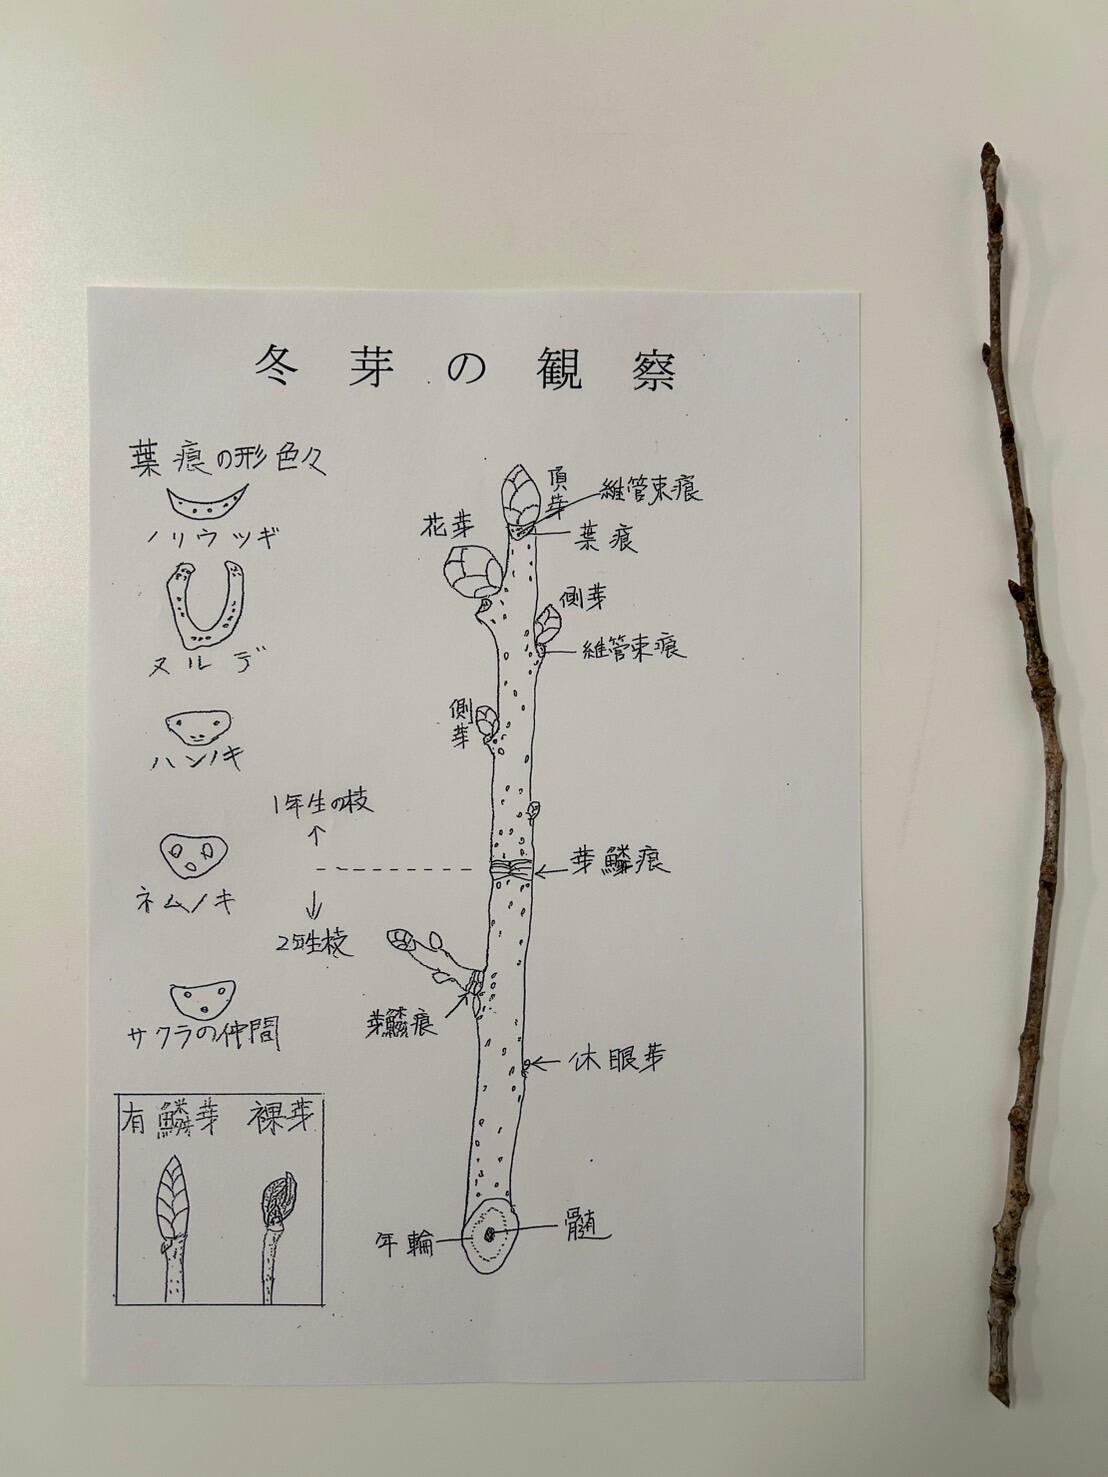 冬芽の観察
葉痕の形色々
ノリウツギ
ヌルデ
ハンノキ
ネムノキ
サクラの仲間
有鱗芽 裸芽
頂芽
維管束痕
葉痕
花芽
側芽
維管束痕
側芽
1年生の枝
↑
芽鱗痕
↓
2年生枝
芽鱗痕
休眠芽
年輪
髄